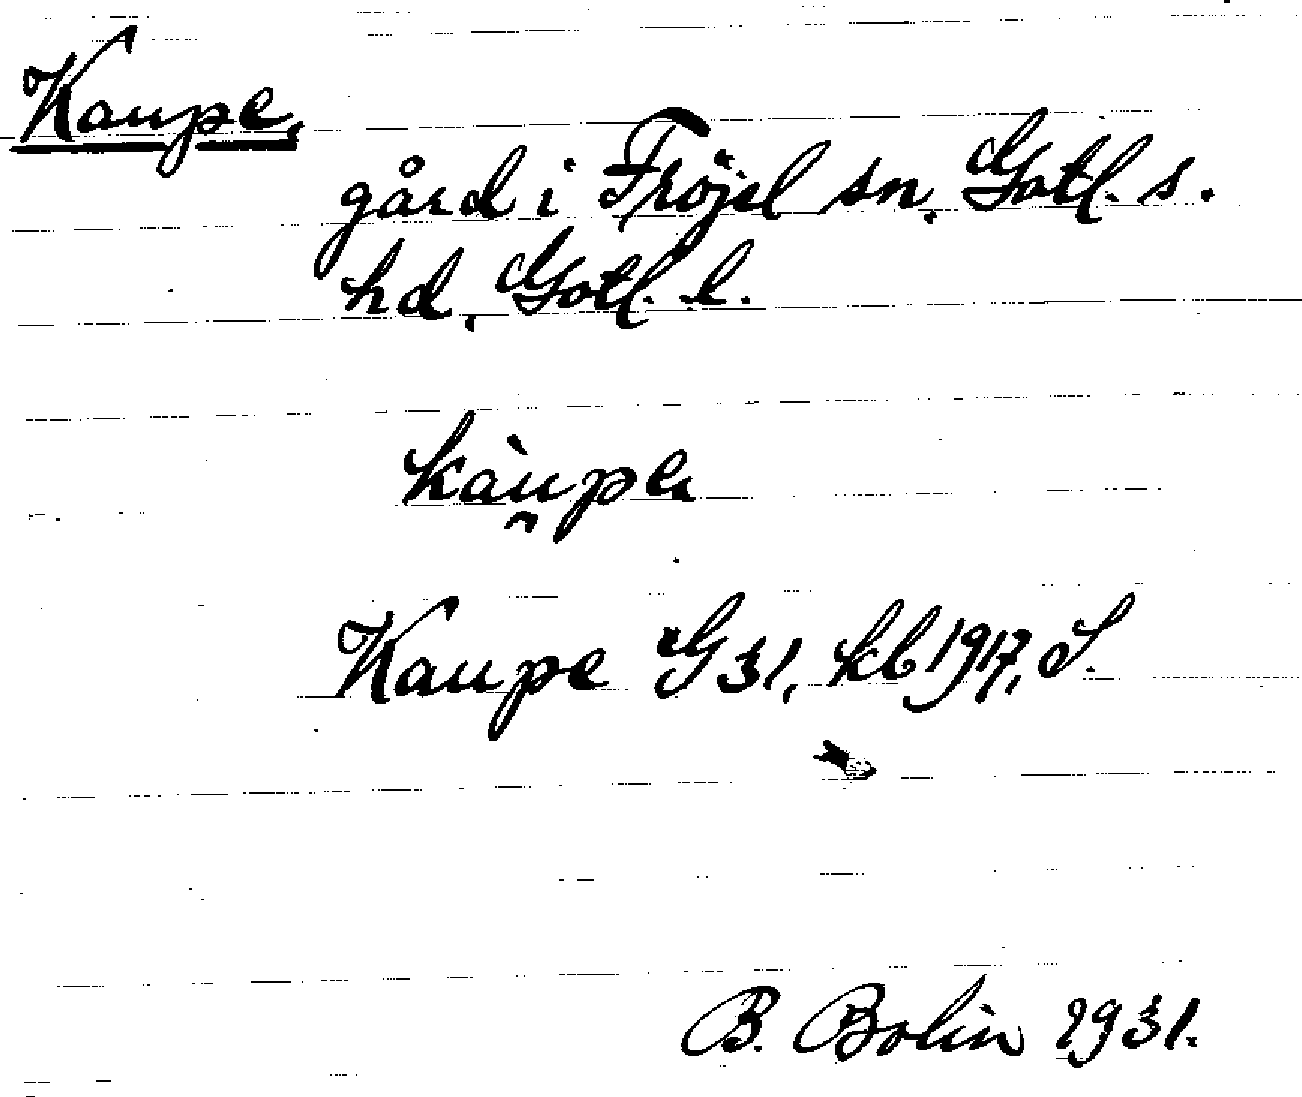 Kaupe,
gård i Fröjel sn, Gotl. s.
hd, Gotl. l.
kàu̯pe
Kaupe G 31, kb 1917, S.
B. Bolin 1931.